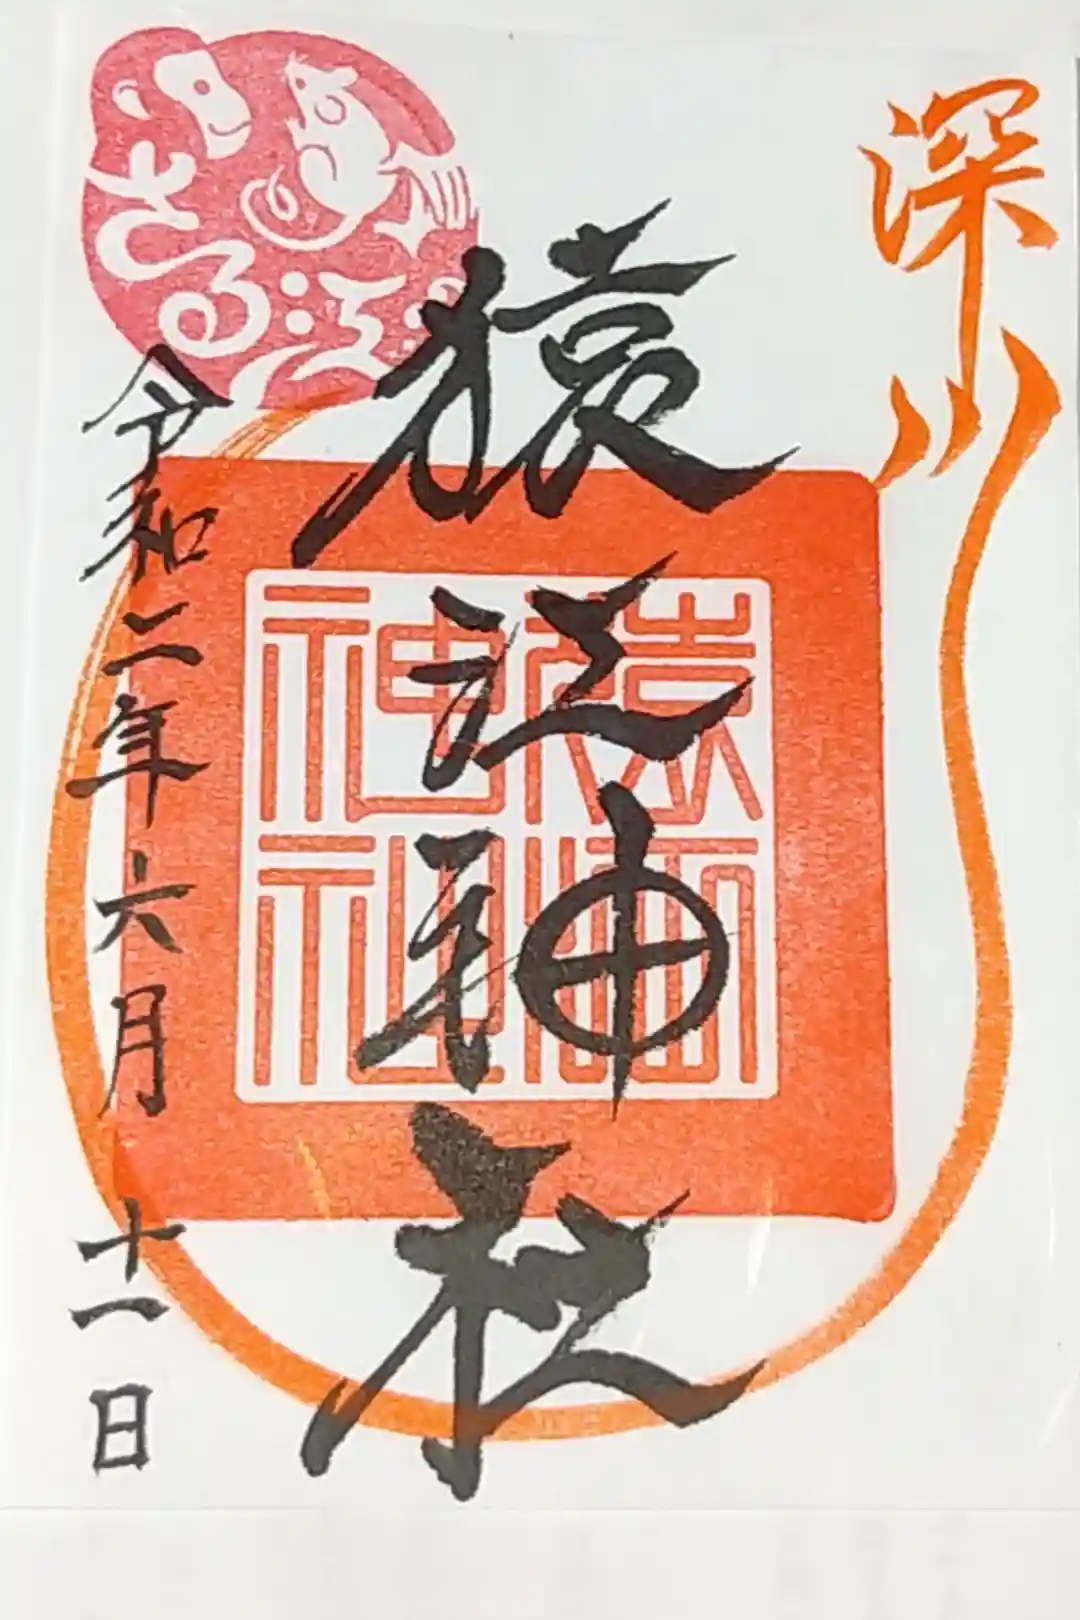 深川
猿江神社
猿江神社
さる江
令和二年六月十一日